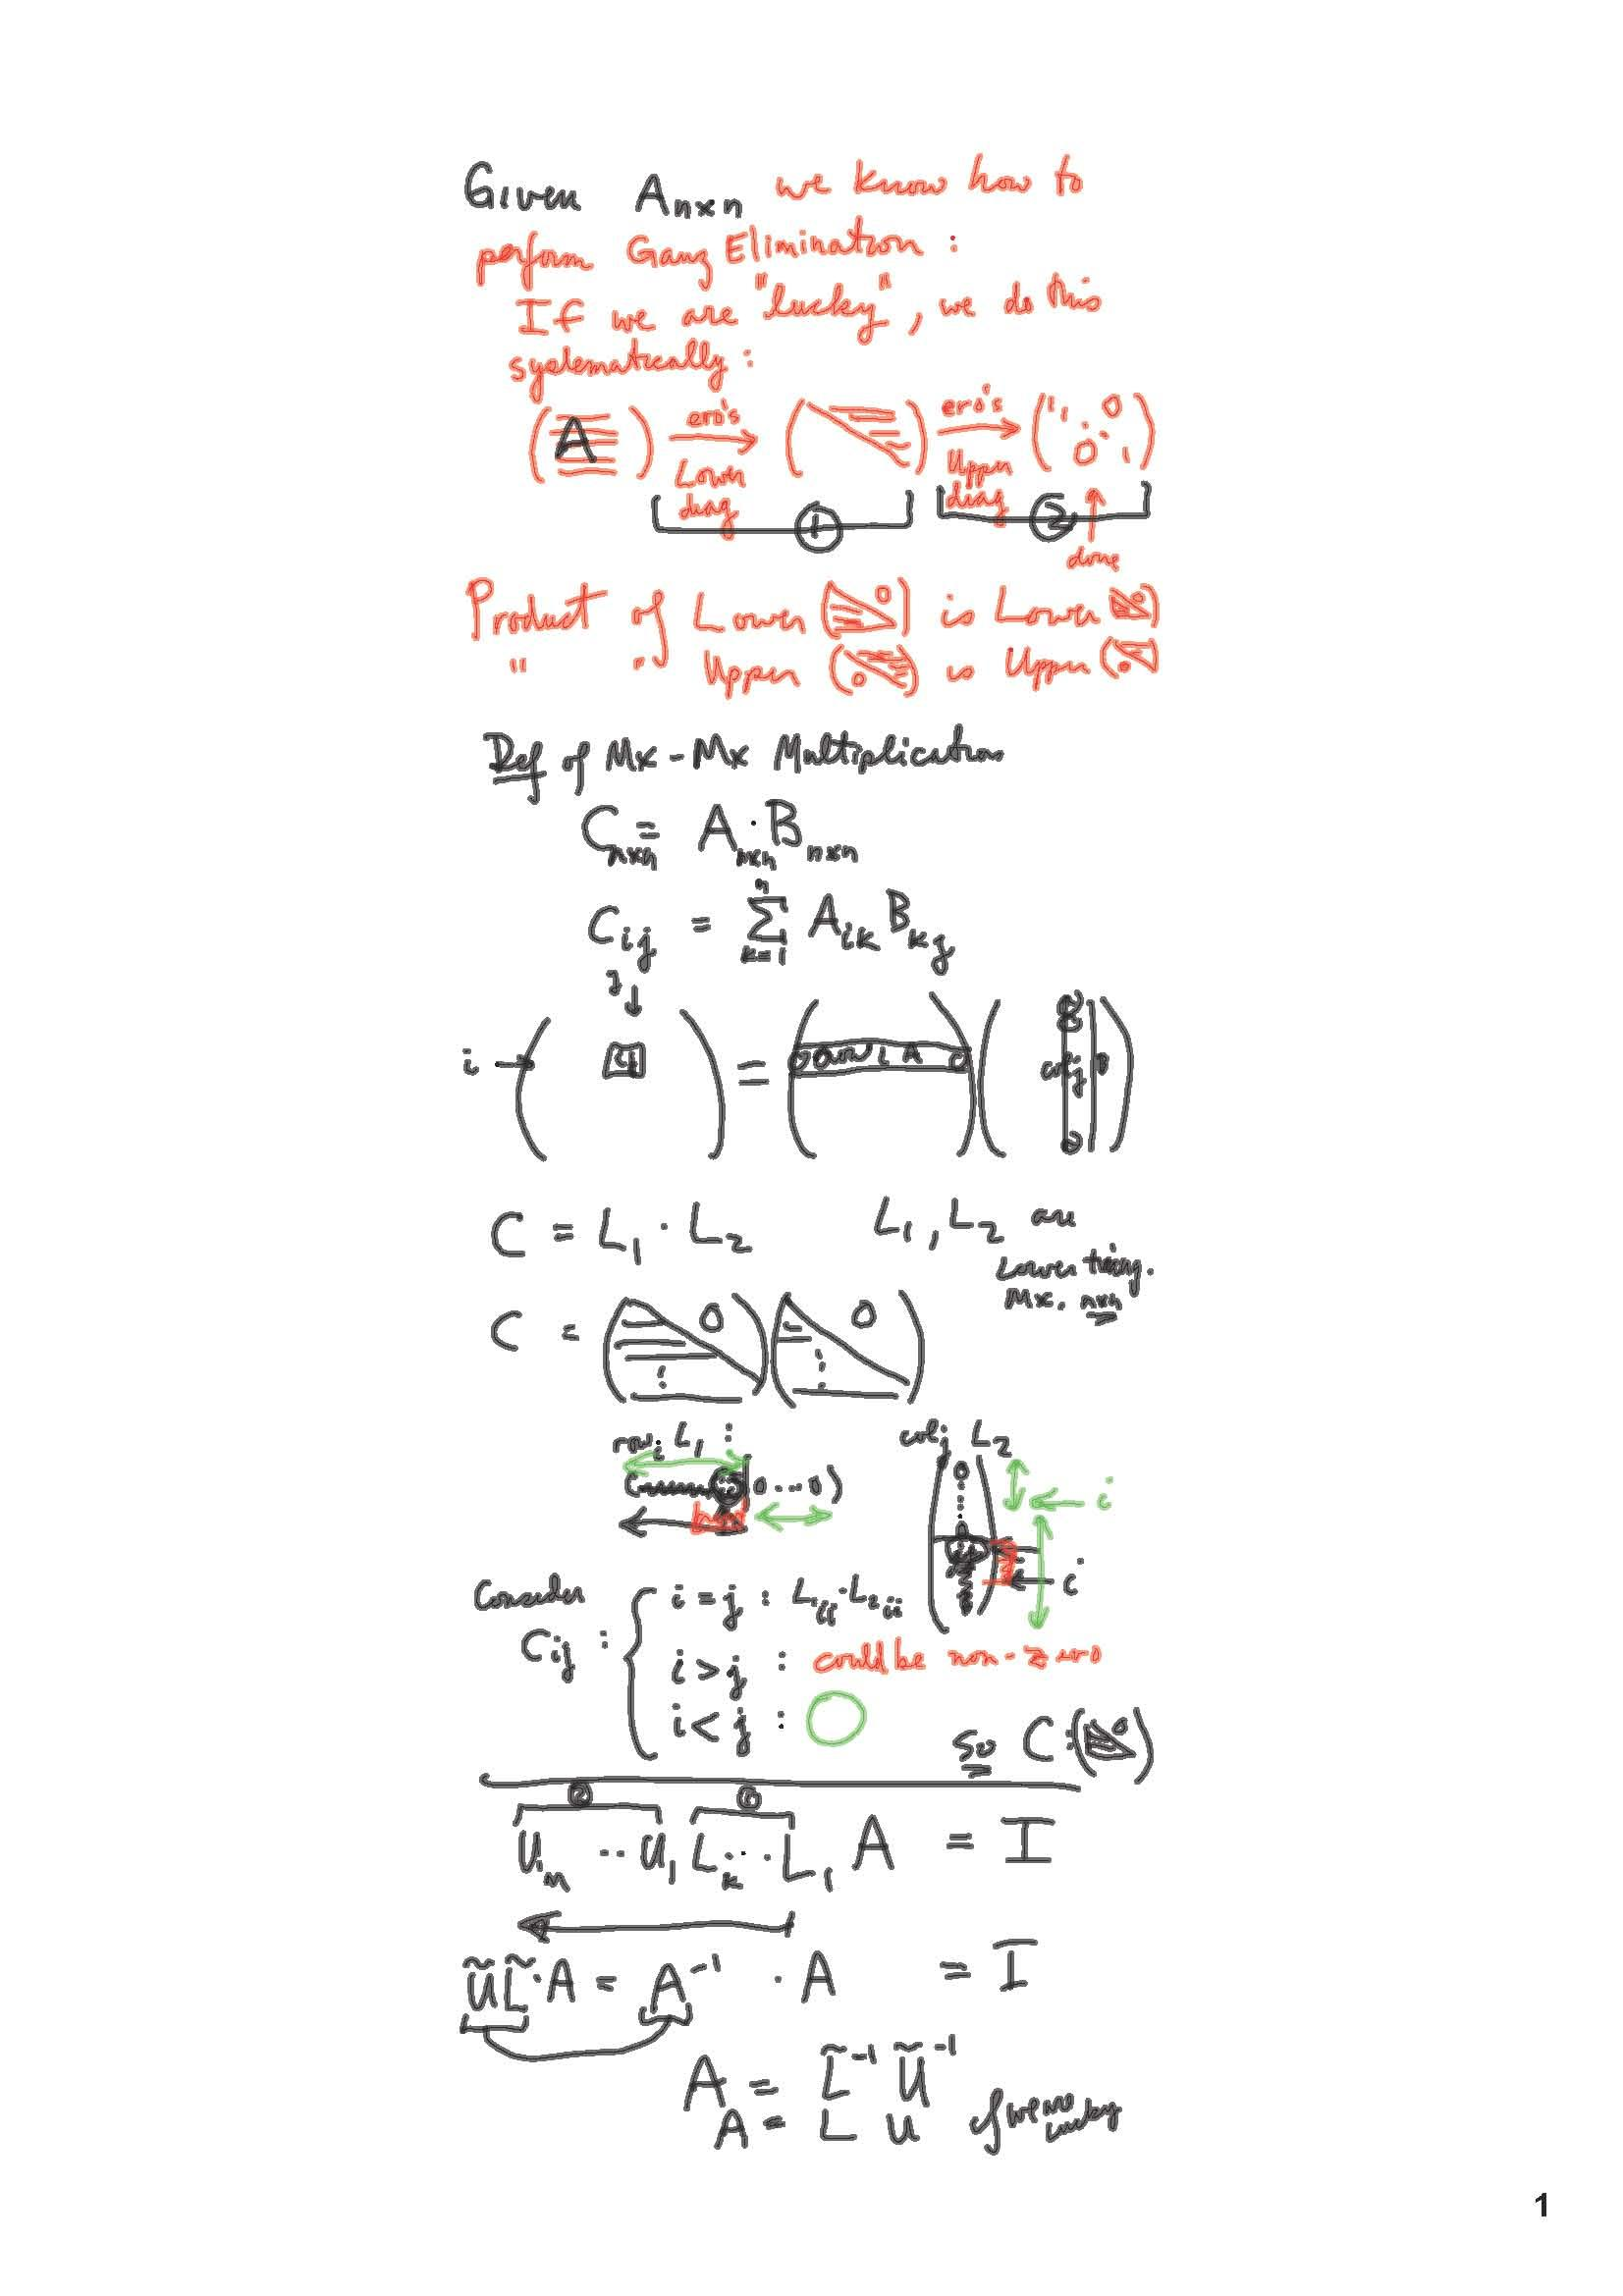 Given A_{n×n} we know how to
perform Gauß Elimination :
If we are "lucky", we do this
systematically :
( A ) ero's → ( ) ero's → ( 1 1 . 0 0 . 1 )
Lower diag Upper diag
① ②
↑ done
Product of Lower ( 0 ) is Lower ( 0 )
" " Upper ( 0 ) is Upper ( 0 )
Def of Mx - Mx Multiplication
C_{n×n} = A_{n×n} · B_{n×n}
C_{ij} = Σ_{k=1}^{n} A_{ik} B_{kj}
j ↓
i → ( C_{ij} ) = ( row i A ) ( col j B )
C = L_1 · L_2 L_1 , L_2 are
Lower triang.
Mx. n×n
C = ( 0 ⋮ ) ( 0 ⋮ )
row_i L_1 : col_j L_2
( 0 ... 0 ) 0 ← i
← i
Consider
C_{ij} : { i = j : L_{1ii} · L_{2ii}
i > j : could be non-zero
i < j : 0
So C : ( 0 )
② ①
U_m ·· U_1 L_k ··· L_1 A = I
Ũ L̃ · A = A^{-1} · A = I
A = L̃^{-1} Ũ^{-1}
A = L U if we are lucky
1